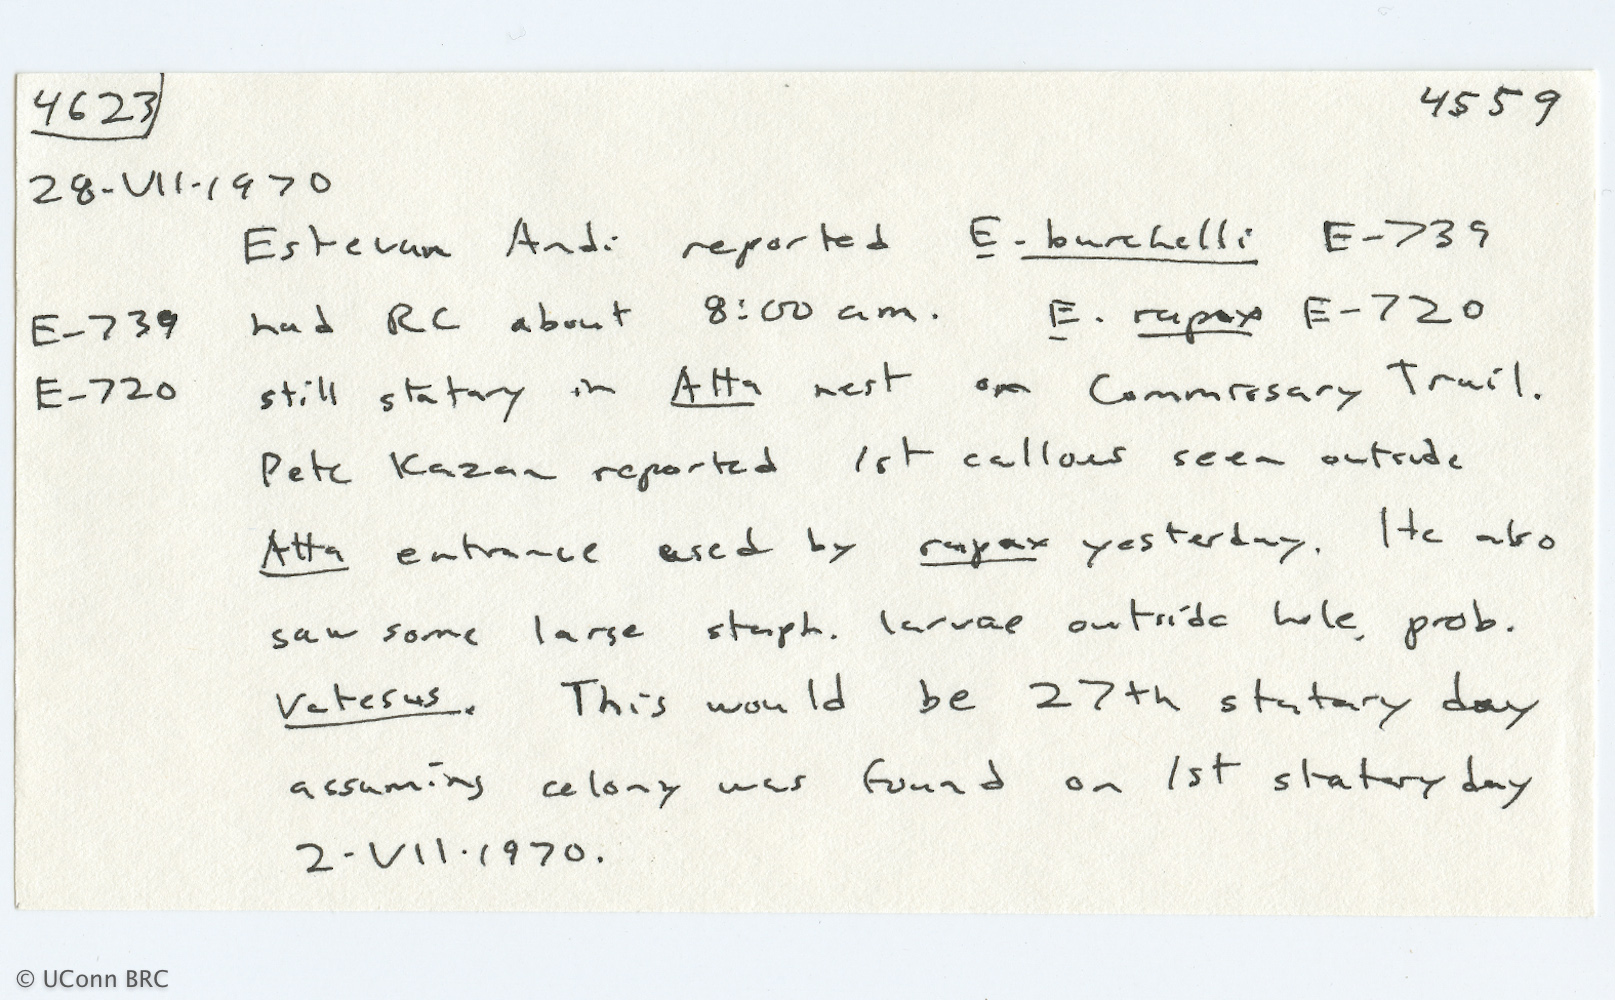 4623 4559
28-VII-1970
Estevan Andi reported E. burchelli E-739
E-739 had RC about 8:00 am. E. rapax E-720
E-720 still statary in Atta nest on Commissary Trail.
Pete Kazan reported 1st callows seen outside
Atta entrance used by rapax yesterday. He also
saw some large staph. larvae outside hole, prob.
Vatesus. This would be 27th statary day
assuming colony was found on 1st statary day
2-VII-1970.
© UConn BRC